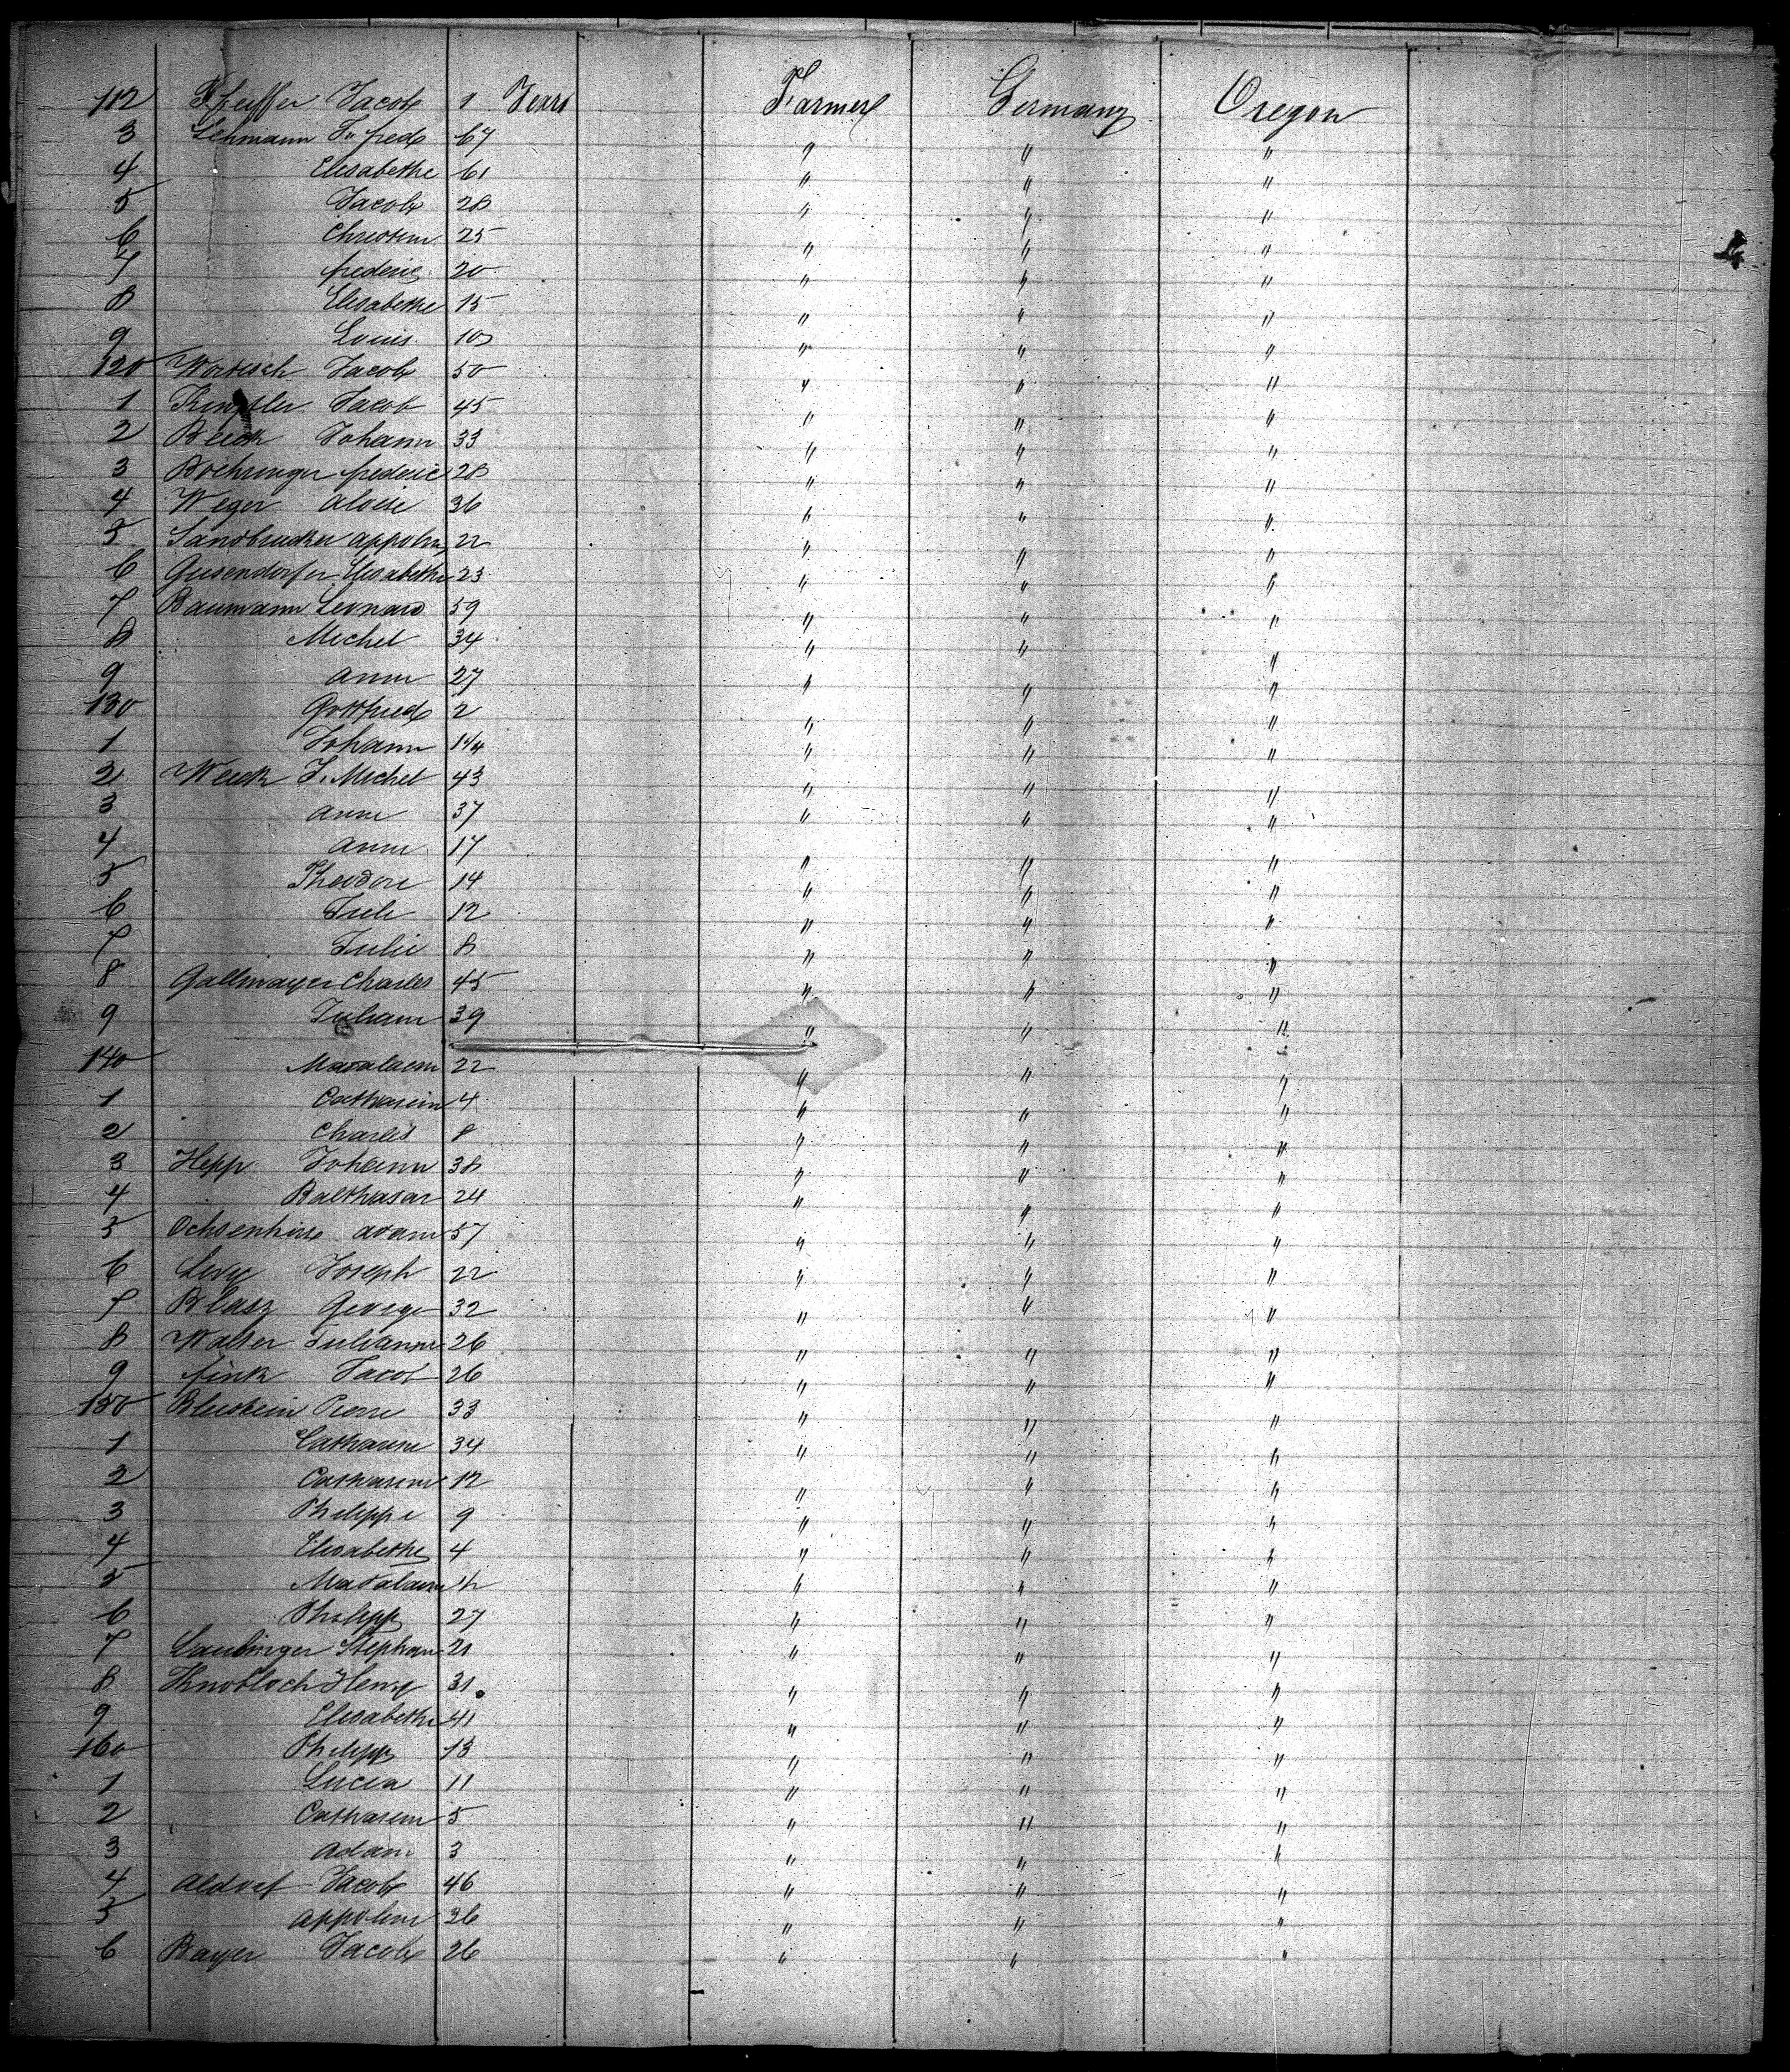 112 Pfeiffer Jacob 1 Years Farmer Germany Oregon
3 Lehmann Fr. fred 67 " " "
4 Elisabethe 61 " " "
5 Jacob 28 " " "
6 Christine 25 " " "
7 frederic 20 " " "
8 Elisabethe 15 " " "
9 Louis 10 " " "
120 Jacob 50 " " "
1 Jacob 45 " " "
2 Johann 33 " " "
3 Boehringer frederic 28 " " "
4 Weger aloise 36 " " "
5 Sandbrucker 22 " " "
6 Geisendorfer Elisabethe 23 " " "
7 Baumann Leonard 59 " " "
8 Michel 34 " " "
9 Anne 27 " " "
130 Gottfried 2 " " "
1 Johann 1 1/4 " " "
2 Weick J. Michel 43 " " "
3 anne 37 " " "
4 anne 17 " " "
5 Theodore 14 " " "
6 12 " " "
7 Julie 8 " " "
8 Gallmayer Charles 45 " " "
9 Juliane 39 " " "
140 Madalaene 22 " " "
1 Catharein 4 " " "
2 Charles 8 " " "
3 Hepp Johann 38 " " "
4 Balthasar 24 " " "
5 Ochsenhirt adam 57 " " "
6 Levy Joseph 22 " " "
7 Blasz George 32 " " "
8 Walter Julianne 26 " " "
9 fink Jacob 26 " " "
150 Bleistein Pierre 33 " " "
1 Catharine 34 " " "
2 Catharine 12 " " "
3 Philippe 9 " " "
4 Elisabethe 4 " " "
5 Madalaene " " "
6 Philipp 27 " " "
7 Laubinger Stephan 21 " " "
8 Knobloch Henry 31 " " "
9 Elisabethe 41 " " "
160 Philipp 13 " " "
1 Lucia 11 " " "
2 Catharine 5 " " "
3 Adam 3 " " "
4 Aldorf Jacob 46 " " "
5 appoline 36 " " "
6 Bayer Jacob 26 " " "